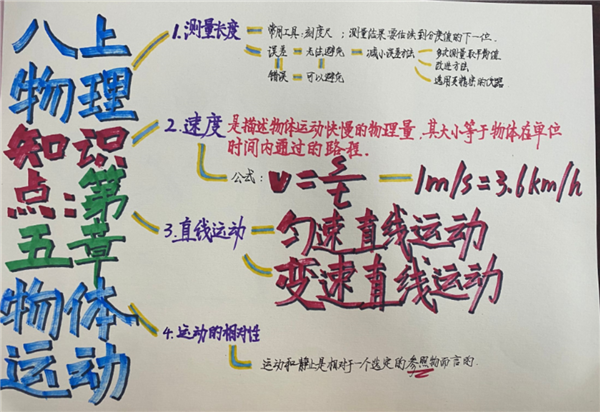 八上
物理
知识
点：第
五章
物体
运动
1.测量长度
常用工具：刻度尺；测量结果要估读到分度值的下一位.
误差 无法避免 减小误差方法 多次测量取平均值
改进方法
选用更精密的仪器
错误 可以避免
2.速度 是描述物体运动快慢的物理量,其大小等于物体在单位
时间内通过的路程.
公式: v=s/t 1m/s=3.6km/h
3.直线运动
匀速直线运动
变速直线运动
4.运动的相对性
运动和静止是相对于一个选定的参照物而言的.